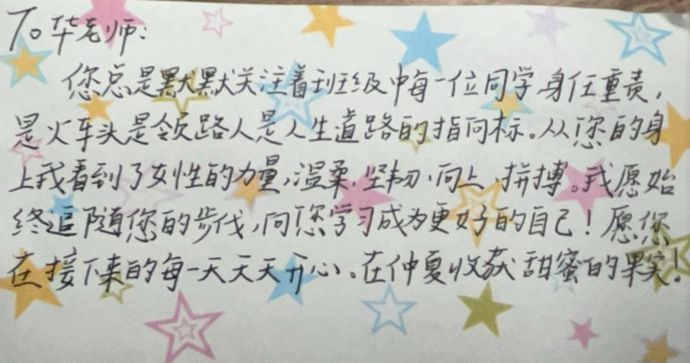 To 华老师:
您总是默默关注着班级中每一位同学身任重责,
是火车头是领路人是人生道路的指向标。从您的身
上我看到了女性的力量,温柔、坚韧、向上、拼搏。我愿始
终追随您的步伐,向您学习成为更好的自己!愿您
在接下来的每一天天天开心。在仲夏收获甜蜜的果实!